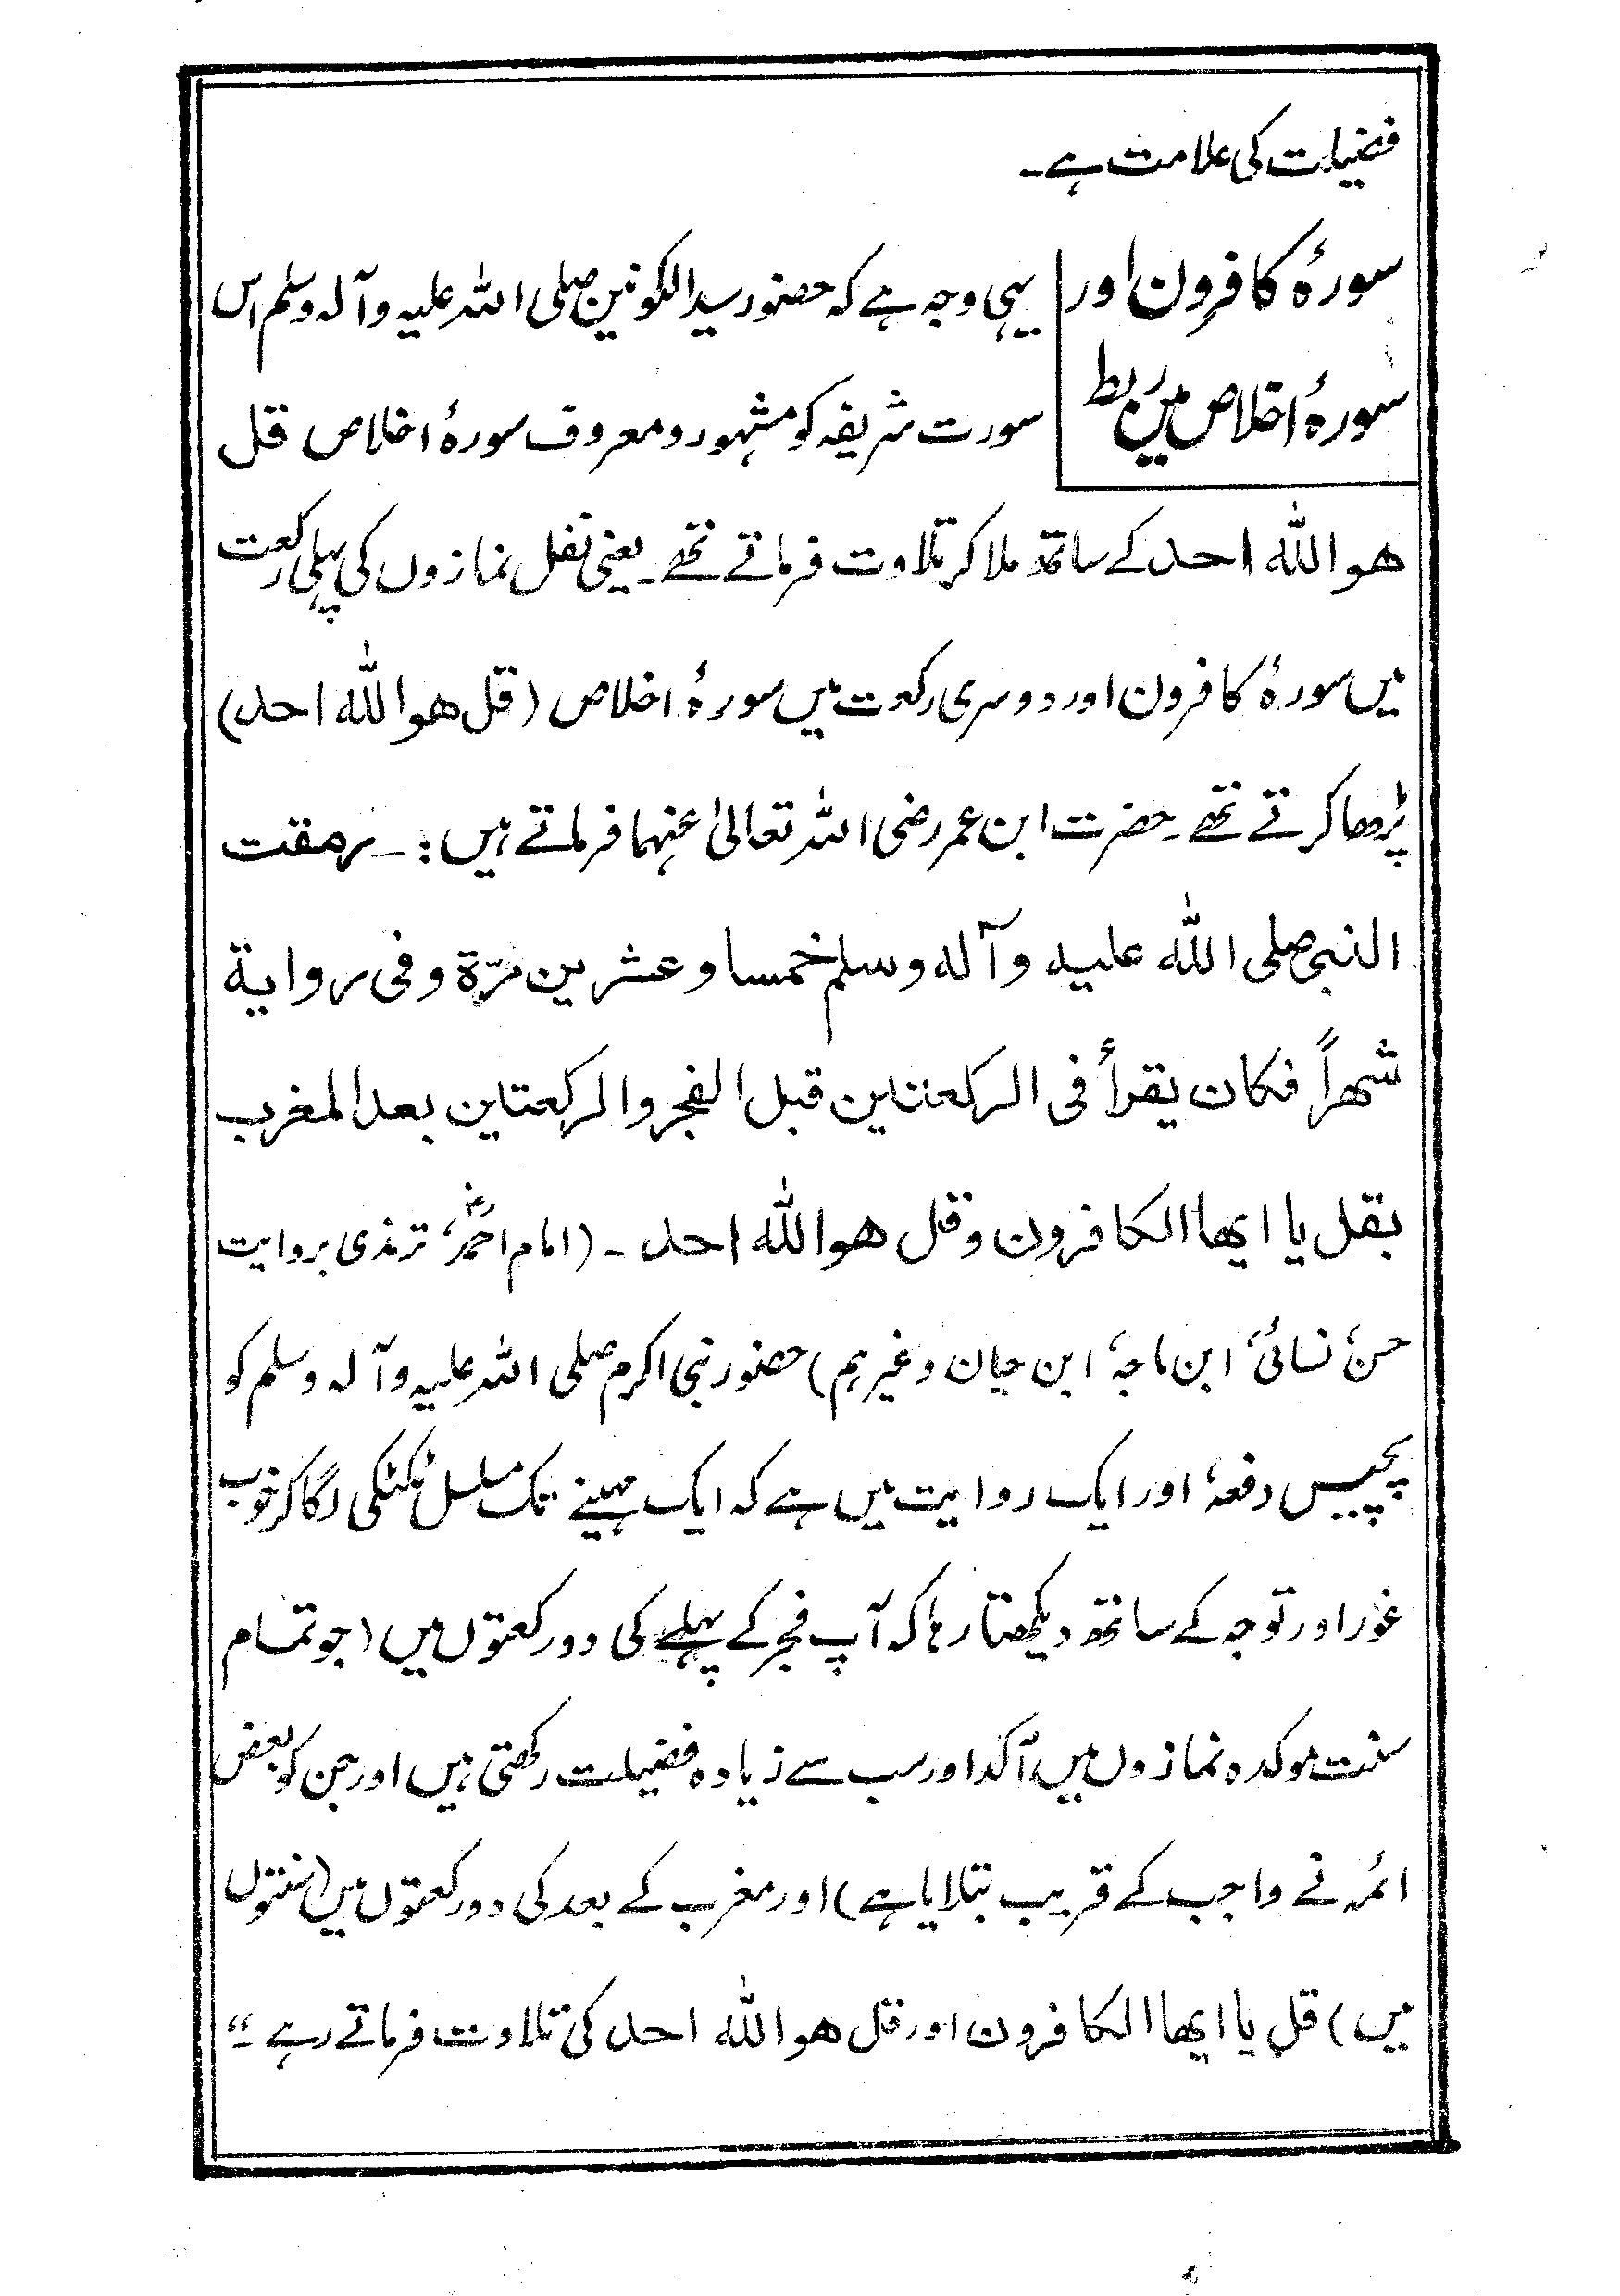 فضیلت کی علامت ہے۔
سورۂ کافرون اور
سورۂ اخلاص میں ربط
یہی وجہ ہے کہ حضور سید الکونین صلی اللہ علیہ وآلہ وسلم اس
سورت شریفہ کو مشہور و معروف سورۂ اخلاص قل
هو الله احد کے ساتھ ملا کر تلاوت فرماتے تھے۔ یعنی نفل نمازوں کی پہلی رکعت
میں سورۂ کافرون اور دوسری رکعت میں سورۂ اخلاص (قل هو الله احد)
پڑھا کرتے تھے۔ حضرت ابن عمر رضی اللہ تعالیٰ عنہما فرماتے ہیں:۔ رمقت
النبی صلی الله علیه وآله وسلم خمسا وعشرین مرّة وفی روایة
شهراً فکان یقرأ فی الرکعتین قبل الفجر والرکعتین بعد المغرب
بقل یا ایها الکافرون وقل هو الله احد۔ (امام احمدؒ، ترمذی بروایت
حسن، نسائی، ابن ماجہ، ابن حبان وغیرہم) حضور نبی اکرم صلی اللہ علیہ وآلہ وسلم کو
پچیس دفعہ، اور ایک روایت میں ہے کہ ایک مہینے تک مسلسل ٹکٹکی لگا کر خوب
غور اور توجہ کے ساتھ دیکھتا رہا کہ آپ فجر کے پہلے کی دو رکعتوں میں (جو تمام
سنت موکدہ نمازوں میں آکد اور سب سے زیادہ فضیلت رکھتی ہیں اور جن کو بعض
ائمہ نے واجب کے قریب بتلایا ہے) اور مغرب کے بعد کی دو رکعتوں میں (سنتوں
میں) قل یا ایها الکافرون اور قل هو الله احد کی تلاوت فرماتے رہے۔“